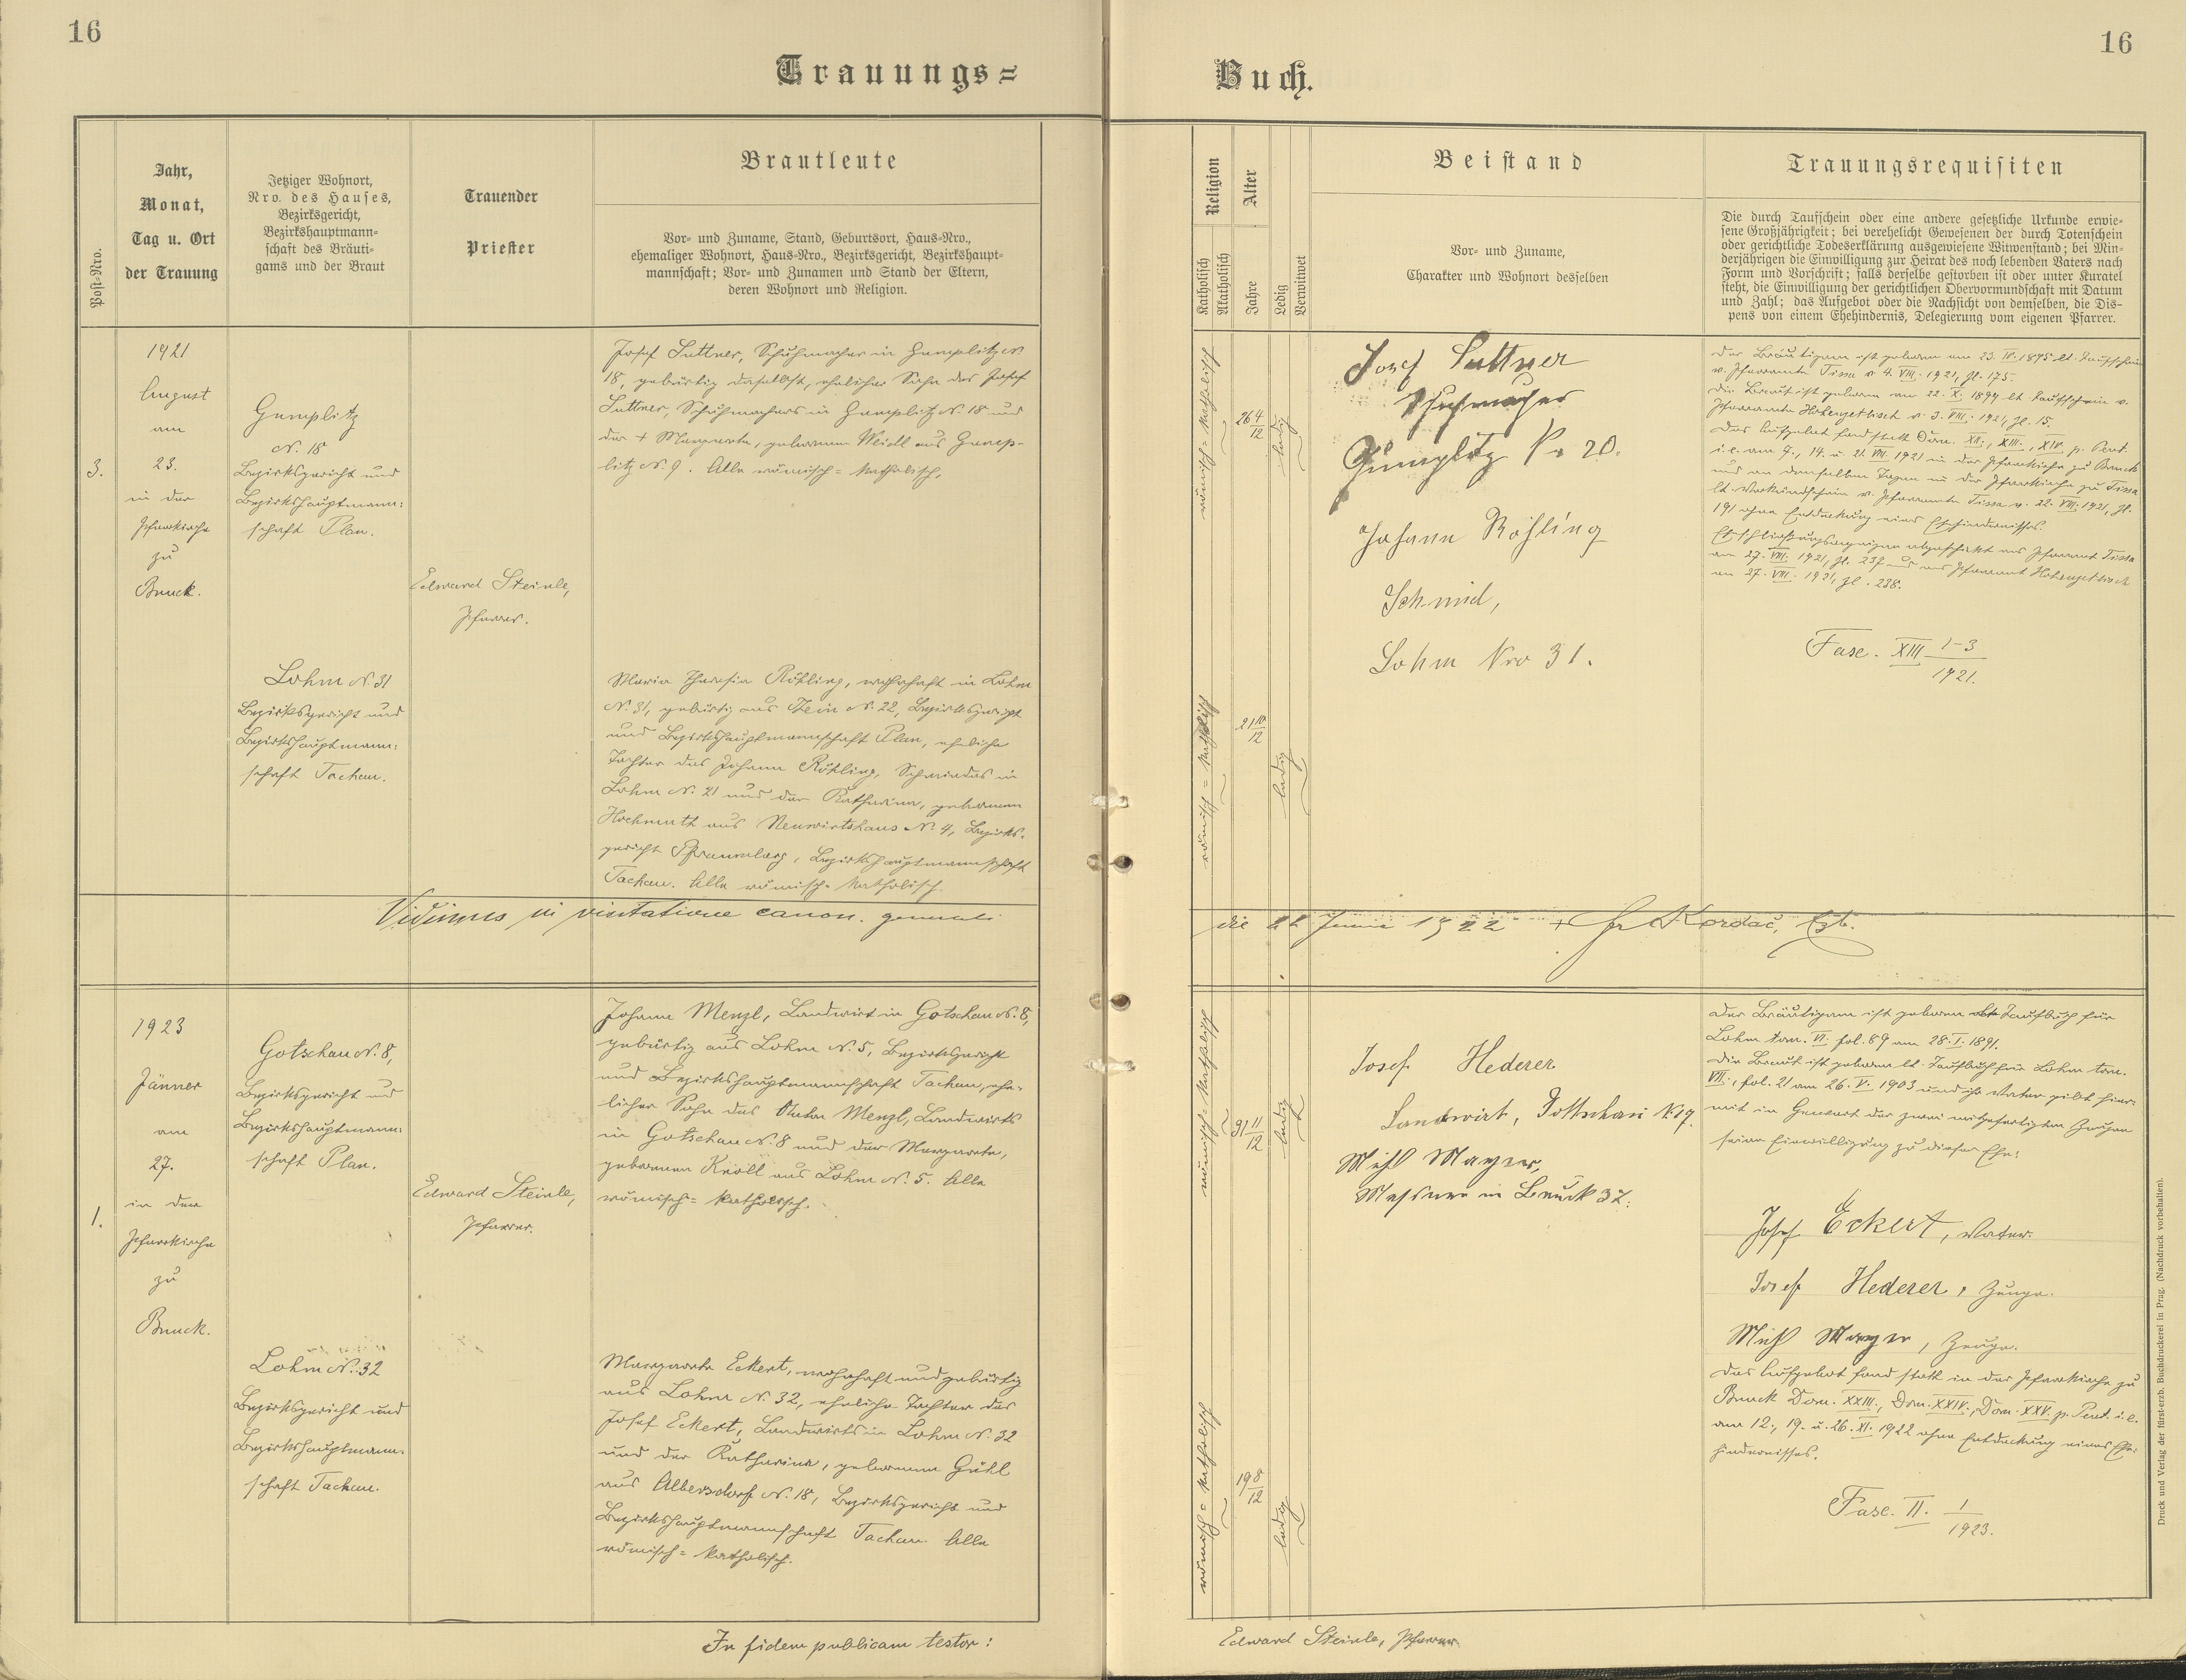 16
16
Trauungs=
Buch.
Post-Nro.
Jahr,
Monat,
Tag u. Ort
der Trauung
Jetziger Wohnort,
Nro. des Hauses,
Bezirksgericht,
Bezirkshauptmann-
schaft des Bräuti-
gams und der Braut
Trauender
Priester
Brautleute
Vor- und Zuname, Stand, Geburtsort, Haus-Nro.,
ehemaliger Wohnort, Haus-Nro., Bezirksgericht, Bezirkshaupt-
mannschaft; Vor- und Zunamen und Stand der Eltern,
deren Wohnort und Religion.
Religion
Katholisch
Akatholisch
Alter
Jahre
Ledig
Verwitwet
Beistand
Vor- und Zuname,
Charakter und Wohnort desselben
Trauungsrequisiten
Die durch Taufschein oder eine andere gesetzliche Urkunde erwie-
sene Großjährigkeit; bei verehelicht Gewesenen der durch Totenschein
oder gerichtliche Todeserklärung ausgewiesene Witwenstand; bei Min-
derjährigen die Einwilligung zur Heirat des noch lebenden Vaters nach
Form und Vorschrift; falls derselbe gestorben ist oder unter Kuratel
steht, die Einwilligung der gerichtlichen Obervormundschaft mit Datum
und Zahl; das Aufgebot oder die Nachsicht von demselben, die Dis-
pens von einem Ehehindernis, Delegierung vom eigenen Pfarrer.
3.
1921
August
am
23.
in der
Pfarrkirche
zu
Bruck.
Gumplitz
N. 18
Bezirksgericht und
Bezirkshauptmann=
schaft Plan.
Lohm N. 31
Bezirksgericht und
Bezirkshauptmann=
schaft Tachau.
Edward Steinle,
Pfarrer.
Josef Suttner, Schuhmacher in Gumplitz N.
18, gebürtig daselbst, ehelicher Sohn des Josef
Suttner, Schuhmachers in Gumplitz N. 18 und
der + Margareta, geborenen Weidl aus Gump-
litz N. 9. Alle römisch=katholisch.
Maria Theresia Röhling, wohnhaft in Lohm
N. 31, gebürtig aus Stein N. 22, Bezirksgericht
und Bezirkshauptmannschaft Plan, eheliche
Tochter des Johann Röhling, Schmiedes in
Lohm N. 21 und der Katharina, geborenen
Hochmuth aus Neuwirtshaus N. 4, Bezirks-
gericht Pfraumberg, Bezirkshauptmannschaft
Tachau. Alle römisch=katholisch.
römisch=katholisch
26 4/12
ledig
römisch=katholisch
21 10/12
ledig
Josef Suttner
Schuhmacher
Gumplitz No 20.
Johann Röhling
Schmied,
Lohm Nro 31.
Der Bräutigam ist geboren am 23. IV. 1895 lt. Taufschein
v. Pfarramte Tissa v. 4. VIII. 1921, Zl. 175.
Die Braut ist geboren am 22. X. 1899 lt Taufschein v.
Pfarramte Hohenzetlisch v. 3. VIII. 1921, Zl. 15.
Das Aufgebot fand statt Dom. XII., XIII., XIV. p. Pent.
i. e. am 7., 14. u. 21. VIII. 1921 in der Pfarrkirche zu Bruck
und an denselben Tagen in der Pfarrkirche zu Tissa
lt. Verkündschein v. Pfarramte Tissa v. 22. VIII. 1921, Zl.
191 ohne Entdeckung eines Ehehindernisses.
Eheschließungsanzeigen abgeschickt ans Pfarramt Tissa
am 27. VIII. 1921, Zl. 237 und ans Pfarramt Hohenzetlisch
am 27. VIII. 1921, Zl. 238.
Fasc. XIII 1-3/1921.
Vidimus in visitatione canon. generali
die 22 Junii 1922 + Fr Kordač, Ezb.
1.
1923
Jänner
am
27.
in der
Pfarrkirche
zu
Bruck.
Gotschau N. 8,
Bezirksgericht und
Bezirkshauptmann=
schaft Plan.
Lohm N. 32
Bezirksgericht und
Bezirkshauptmann=
schaft Tachau.
Edward Steinle,
Pfarrer.
Johann Menzl, Landwirt in Gotschau N. 8,
gebürtig aus Lohm N. 5, Bezirksgericht
und Bezirkshauptmannschaft Tachau, ehe-
licher Sohn des Anton Menzl, Landwirts
in Gotschau N. 8 und der Margareta,
geborenen Kroll aus Lohm N. 5. Alle
römisch=katholisch.
Margareta Eckert, wohnhaft und gebürtig
aus Lohm N. 32, eheliche Tochter des
Josef Eckert, Landwirts in Lohm N. 32
und der Katharina, geborenen Gühl
aus Albersdorf N. 18, Bezirksgericht und
Bezirkshauptmannschaft Tachau. Alle
römisch=katholisch.
römisch=katholisch
31 11/12
ledig
römisch=katholisch
19 8/12
ledig
Josef Hederer
Landwirt, Gottschau N. 19.
Mich Mayer,
Messner in Bruck 37.
Der Bräutigam ist geboren lt Taufbuch für
Lohm tom. VI. fol. 89 am 28. I. 1891.
Die Braut ist geboren lt. Taufbuch für Lohm tom.
VII., fol. 21 am 26. V. 1903 und ihr Vater gibt hier-
mit in Gegenwart der zwei mitgefertigten Zeugen
seine Einwilligung zu dieser Ehe:
Josef Eckert, Vater.
Josef Hederer, Zeuge.
Mich Mayer, Zeuge.
Das Aufgebot fand statt in der Pfarrkirche zu
Bruck Dom. XXIII., Dom. XXIV., Dom. XXV. p. Pent. i. e.
am 12., 19. u. 26. XI. 1922 ohne Entdeckung eines Ehe-
hindernisses.
Fasc. II. 1/1923.
In fidem publicam testor:
Edward Steinle, Pfarrer.
Druck und Verlag der fürst-erzb. Buchdruckerei in Prag. (Nachdruck vorbehalten).